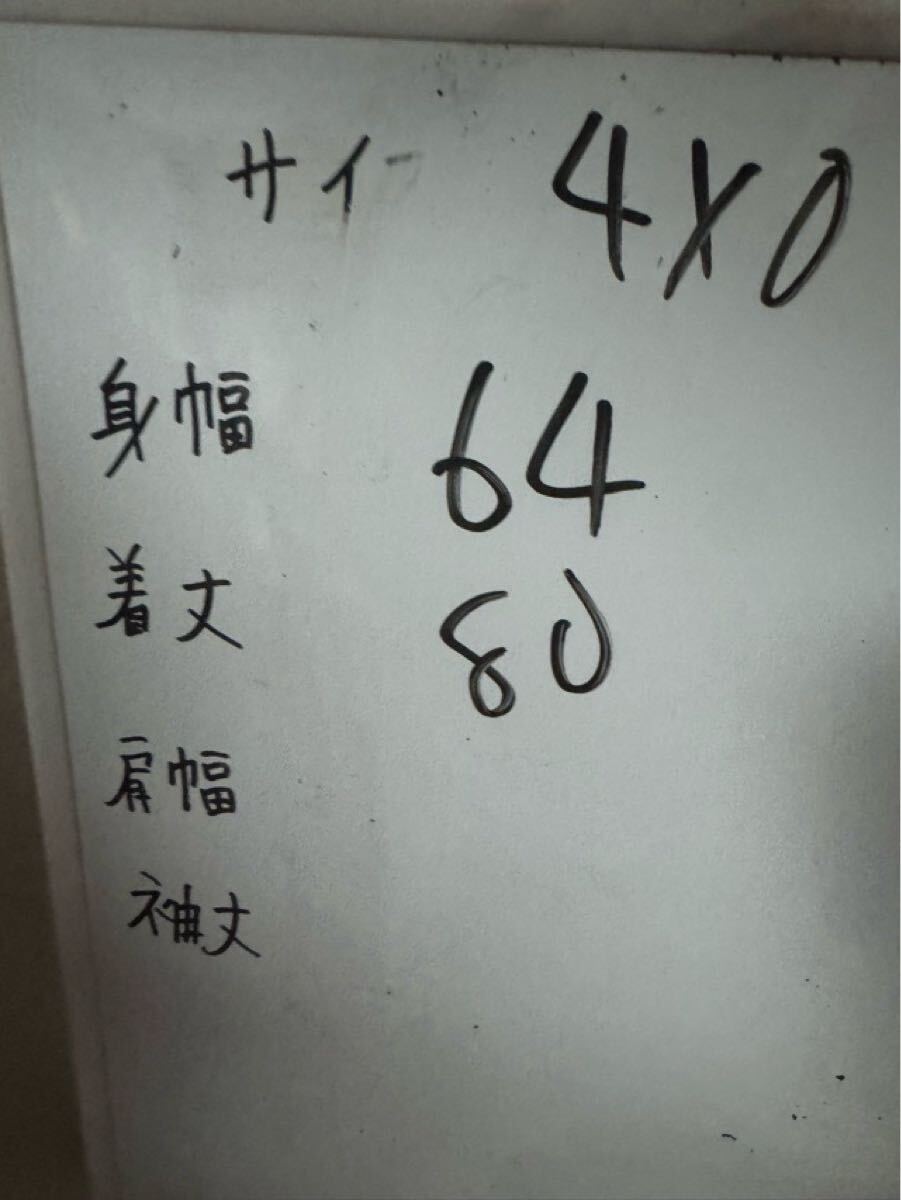 サイ 4X0
身幅 64
着丈 80
肩幅
袖丈